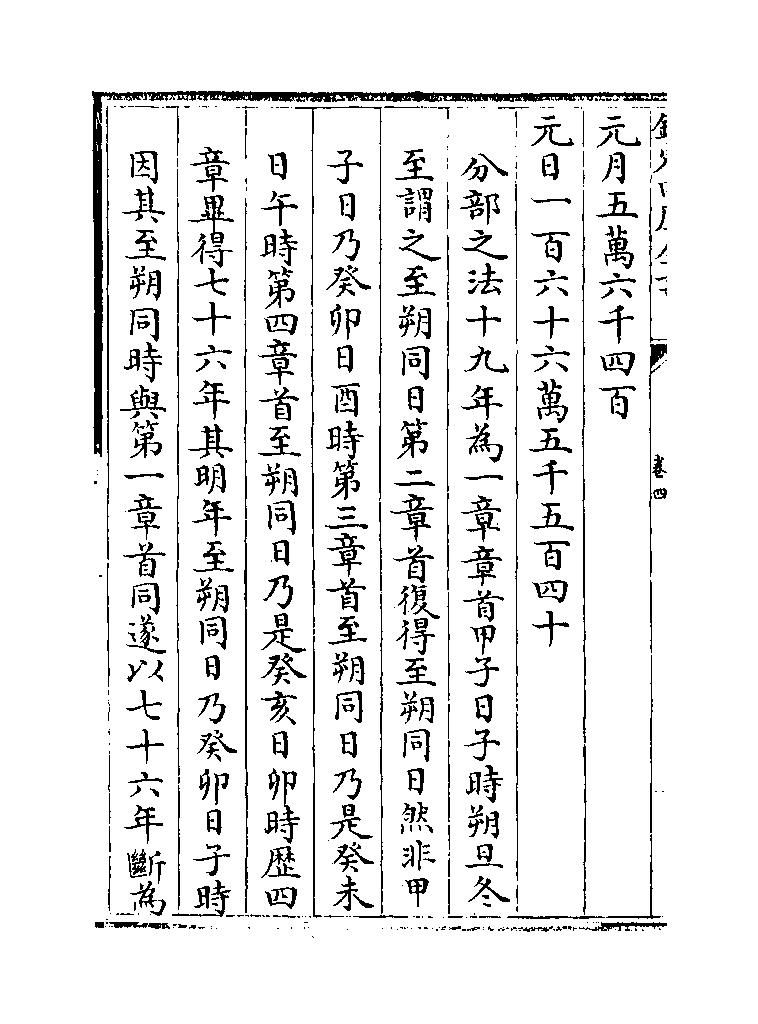 欽定四庫全書
卷四
元月五萬六千四百
元日一百六十六萬五千五百四十
分部之法十九年為一章章首甲子日子時朔旦冬
至謂之至朔同日第二章首復得至朔同日然非甲
子日乃癸卯日酉時第三章首至朔同日乃是癸未
日午時第四章首至朔同日乃是癸亥日卯時歴四
章畢得七十六年其明年至朔同日乃癸卯日子時
因其至朔同時與第一章首同遂以七十六年斷為